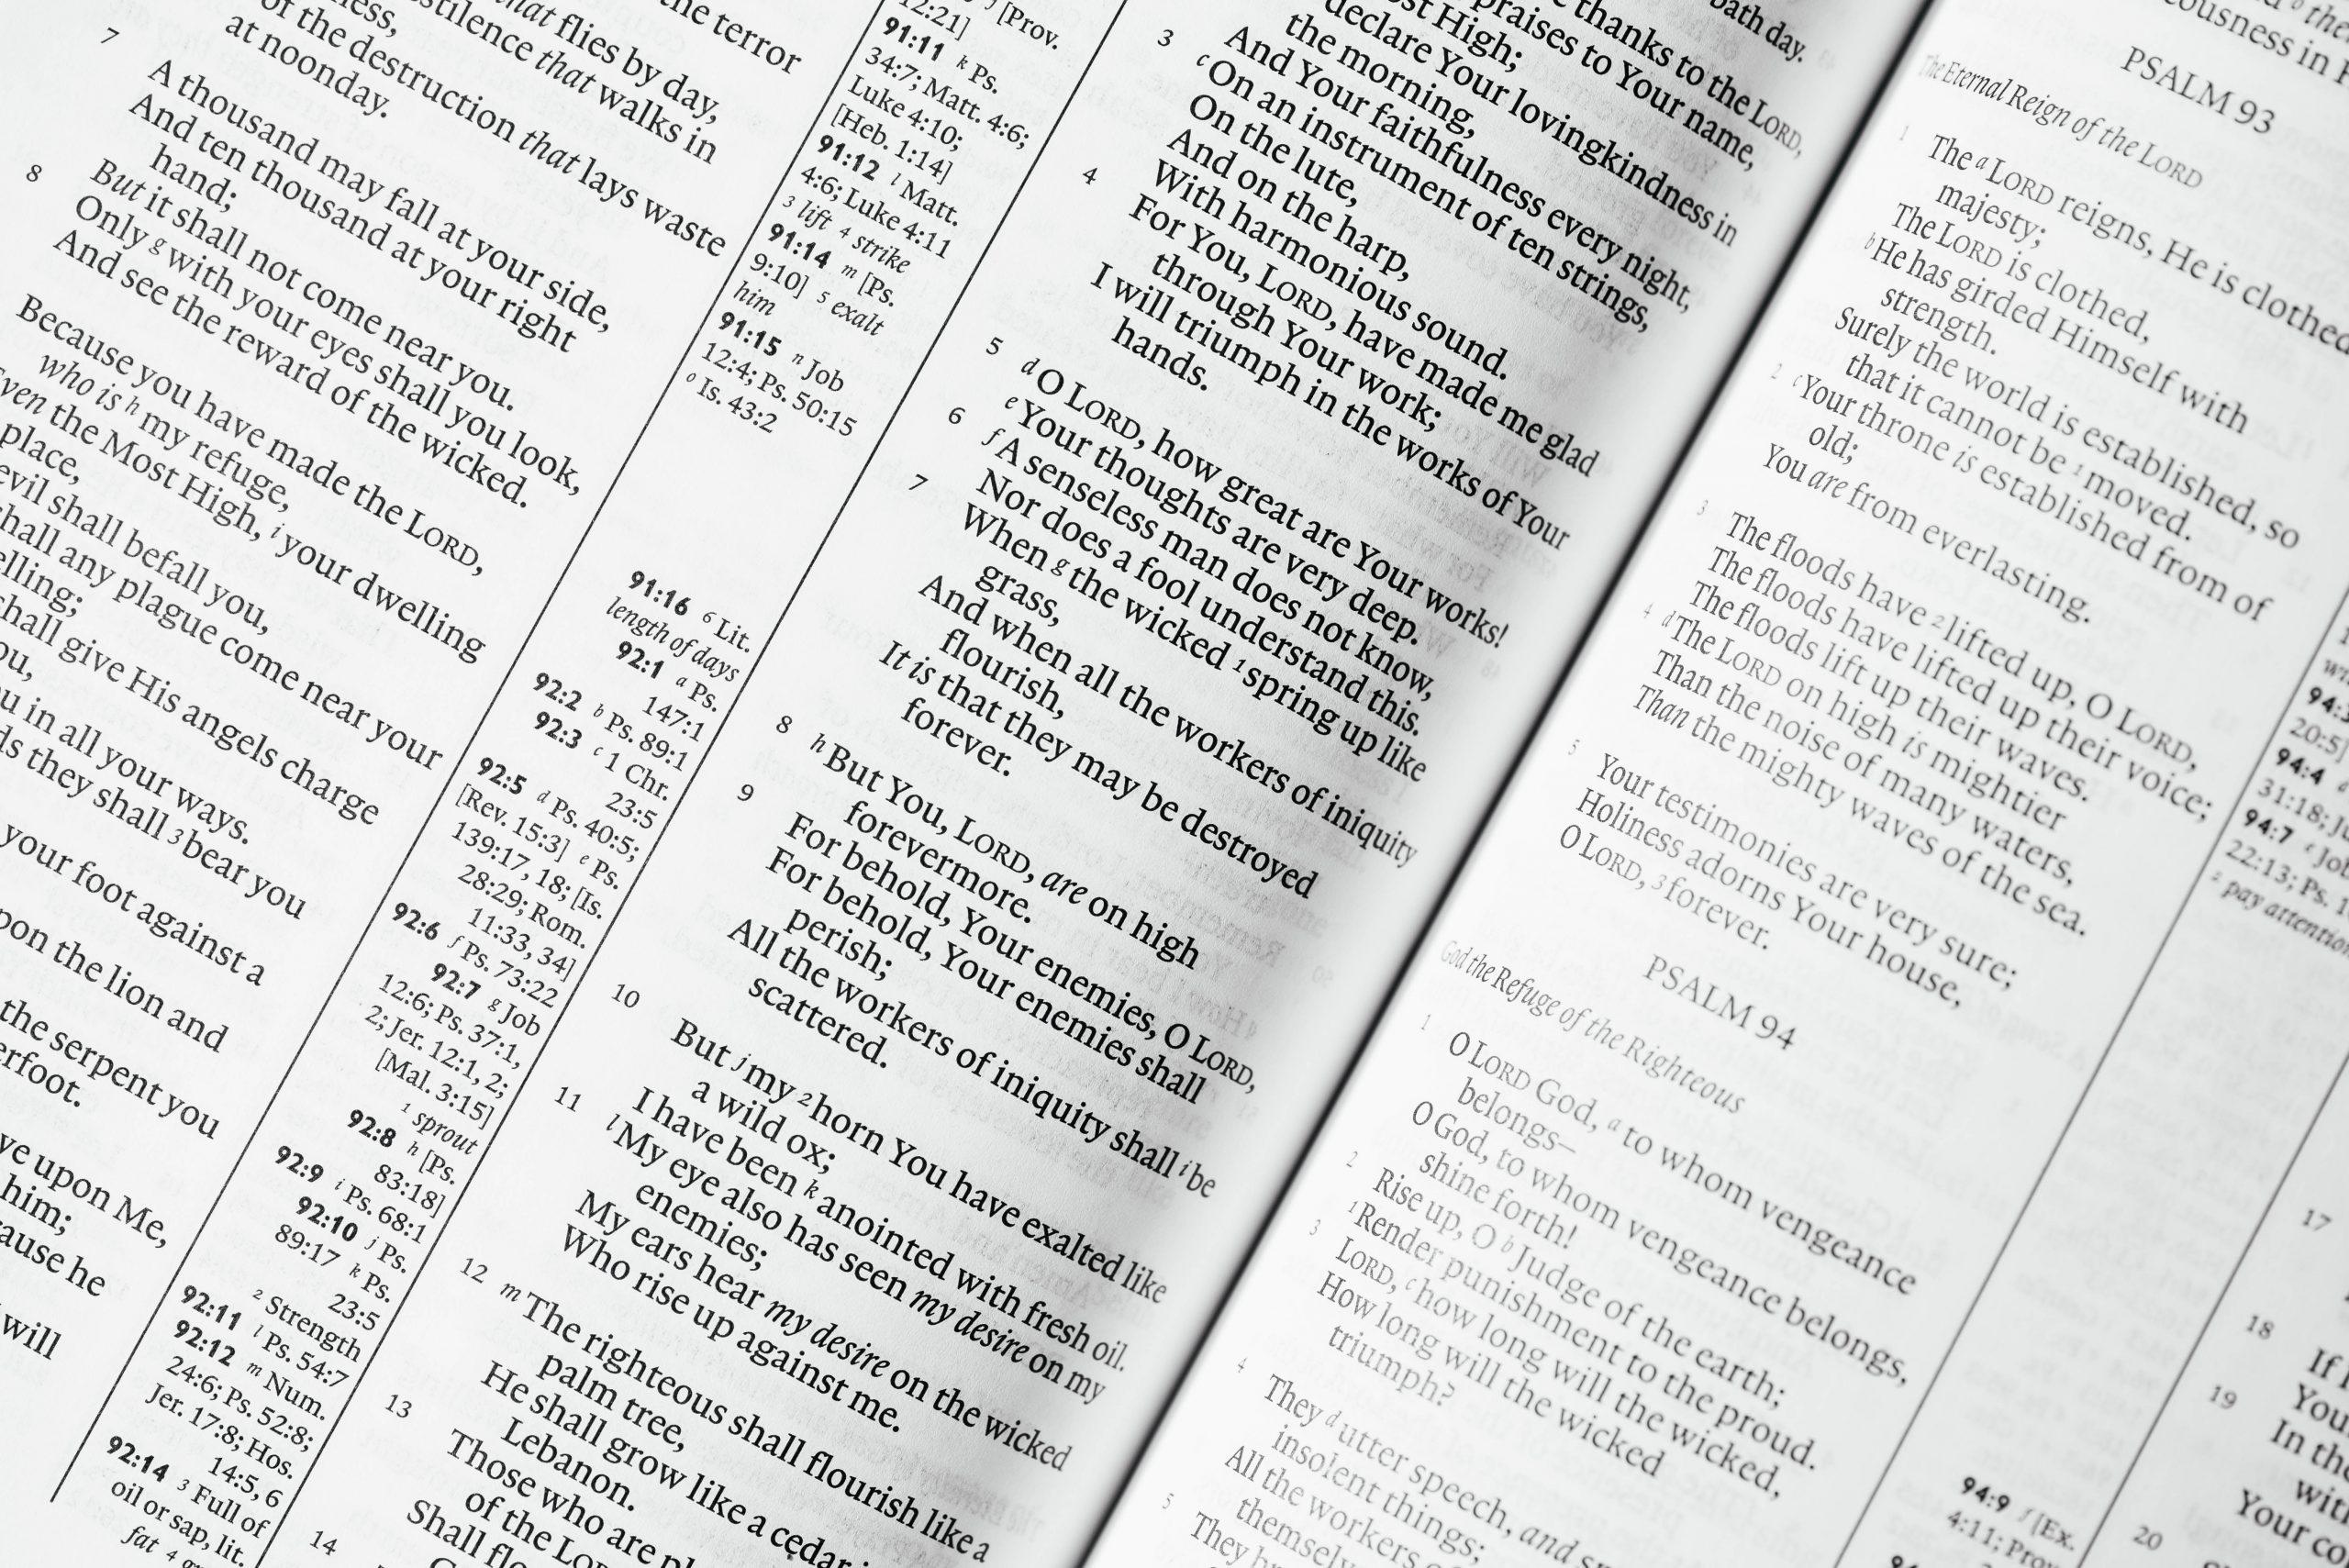 the terror
that flies by day,
that walks in
of the destruction that lays waste
at noonday.
7 A thousand may fall at your side,
And ten thousand at your right
hand;
But it shall not come near you.
8 Only g with your eyes shall you look,
And see the reward of the wicked.
Because you have made the LORD,
who is h my refuge,
Even the Most High, i your dwelling
place,
evil shall befall you,
shall any plague come near your
shall give His angels charge
in all your ways.
they shall 3 bear you
your foot against a
the lion and
the serpent you
upon Me,
him;
he
will
12:21] j [Prov.
91:11 k Ps.
34:7; Matt. 4:6;
Luke 4:10;
[Heb. 1:14]
91:12 l Matt.
4:6; Luke 4:11
3 lift 4 strike
91:14 m [Ps.
9:10] 5 exalt
him
91:15 n Job
12:4; Ps. 50:15
o Is. 43:2
91:16 6 Lit.
length of days
92:1 a Ps.
147:1
92:2 b Ps. 89:1
92:3 c 1 Chr.
23:5
92:5 d Ps. 40:5;
[Rev. 15:3] e Ps.
139:17, 18; [Is.
28:29; Rom.
11:33, 34]
92:6 f Ps. 73:22
92:7 g Job
12:6; Ps. 37:1,
2; Jer. 12:1, 2;
[Mal. 3:15]
1 sprout
92:8 h [Ps.
83:18]
92:9 i Ps. 68:1
92:10 j Ps.
89:17 k Ps.
23:5
2 Strength
92:11 l Ps. 54:7
92:12 m Num.
24:6; Ps. 52:8;
Jer. 17:8; Hos.
14:5, 6
92:14 3 Full of
oil or sap, lit.
fat 4
day.
thanks to the LORD,
praises to Your name,
Most High;
declare Your lovingkindness in
the morning,
And Your faithfulness every night,
3 c On an instrument of ten strings,
On the lute,
And on the harp,
With harmonious sound.
4 For You, LORD, have made me glad
through Your work;
I will triumph in the works of Your
hands.
5 d O LORD, how great are Your works!
e Your thoughts are very deep.
6 f A senseless man does not know,
Nor does a fool understand this.
7 When g the wicked 1 spring up like
grass,
And when all the workers of iniquity
flourish,
It is that they may be destroyed
forever.
8 h But You, LORD, are on high
forevermore.
9 For behold, Your enemies, O LORD,
For behold, Your enemies shall
perish;
All the workers of iniquity shall i be
scattered.
10 But j my 2 horn You have exalted like
a wild ox;
I have been k anointed with fresh oil.
11 l My eye also has seen my desire on my
enemies;
My ears hear my desire on the wicked
Who rise up against me.
12 m The righteous shall flourish like a
palm tree,
He shall grow like a cedar
Lebanon.
13 Those who are
of the LORD
Shall
14
PSALM 93
The Eternal Reign of the LORD
1 The a LORD reigns, He is clothed
majesty;
The LORD is clothed,
b He has girded Himself with
strength.
Surely the world is established, so
that it cannot be 1 moved.
2 c Your throne is established from of
old;
You are from everlasting.
3 The floods have 2 lifted up, O LORD,
The floods have lifted up their voice;
The floods lift up their waves.
4 d The LORD on high is mightier
Than the noise of many waters,
Than the mighty waves of the sea.
5 Your testimonies are very sure;
Holiness adorns Your house,
O LORD, 3 forever.
PSALM 94
God the Refuge of the Righteous
1 O LORD God, a to whom vengeance
belongs—
O God, to whom vengeance belongs,
shine forth!
2 Rise up, O b Judge of the earth;
1 Render punishment to the proud.
3 LORD, c how long will the wicked,
How long will the wicked
triumph?
4 They d utter speech, and
insolent things;
All the workers
5 They
20:5]
94:4 d
31:18;
94:7 e Job
22:13; Ps.
2 pay attention
94:9 f [Ex.
4:11; Prov.
17
18 If
19 In the
Your
20